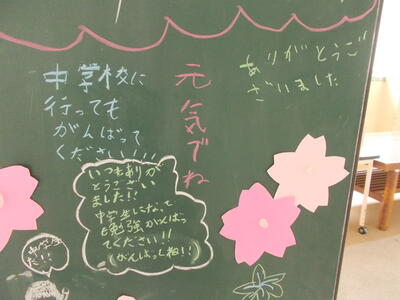 ありがとうご
ざいました
元気でね
中学校に
行っても
がんばって
ください!!!
いつもありが
とうござい
ました!!
中学生になって
も勉強がんばっ
てください!!
(がんばっしね!!)